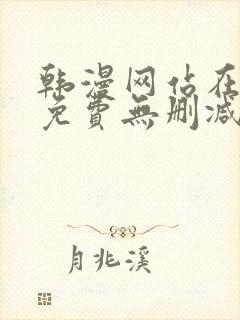 韩漫网站在
免費無删减
月兆溪